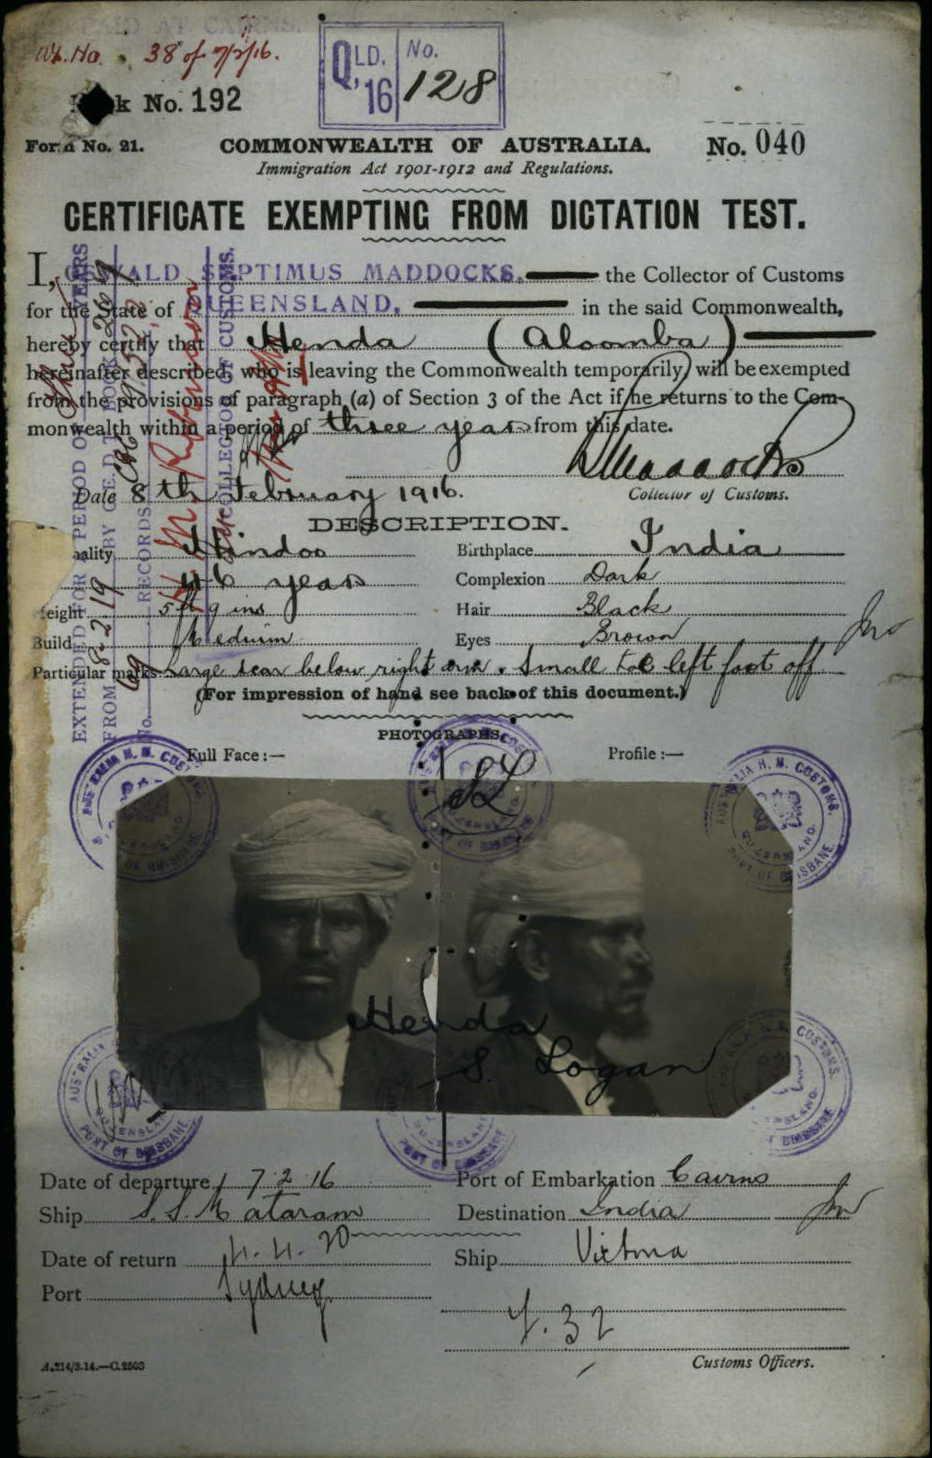 PAID AT CAIRNS.
38 of 7/2/16.
QLD. '16 No. 128
k No. 192
Form No. 21.
COMMONWEALTH OF AUSTRALIA.
No. 040
Immigration Act 1901-1912 and Regulations.
CERTIFICATE EXEMPTING FROM DICTATION TEST.
I, OSWALD SEPTIMUS MADDOCKS, the Collector of Customs
for the State of QUEENSLAND, in the said Commonwealth,
hereby certify that Henda (Aloomba)
hereinafter described, who is leaving the Commonwealth temporarily, will be exempted
from the provisions of paragraph (a) of Section 3 of the Act if he returns to the Com-
monwealth within a period of three years from this date.
Date 8th February 1916.
Collector of Customs.
EXTENDED FOR A PERIOD OF YEARS
FROM 8-2-19 BY C.E.D.T. BOOK
No. RECORDS
COLLECTOR OF CUSTOMS.
DESCRIPTION.
ality Hindoo Birthplace India
46 years Complexion Dark
eight 5 ft 9 ins Hair Black
Build Medium Eyes Brown
Particular marks Large scar below right arm. Small toe left foot off
(For impression of hand see back of this document.)
PHOTOGRAPHS.
Full Face :— Profile :—
AUSTRALIA H. M. CUSTOMS. QUEENSLAND. PORT OF BRISBANE
Henda
S. Logan
Date of departure 17.2.16 Port of Embarkation Cairns
Ship S.S. Mataram Destination India
Date of return 4.4.20 Ship Victoria
Port Sydney
Customs Officers.